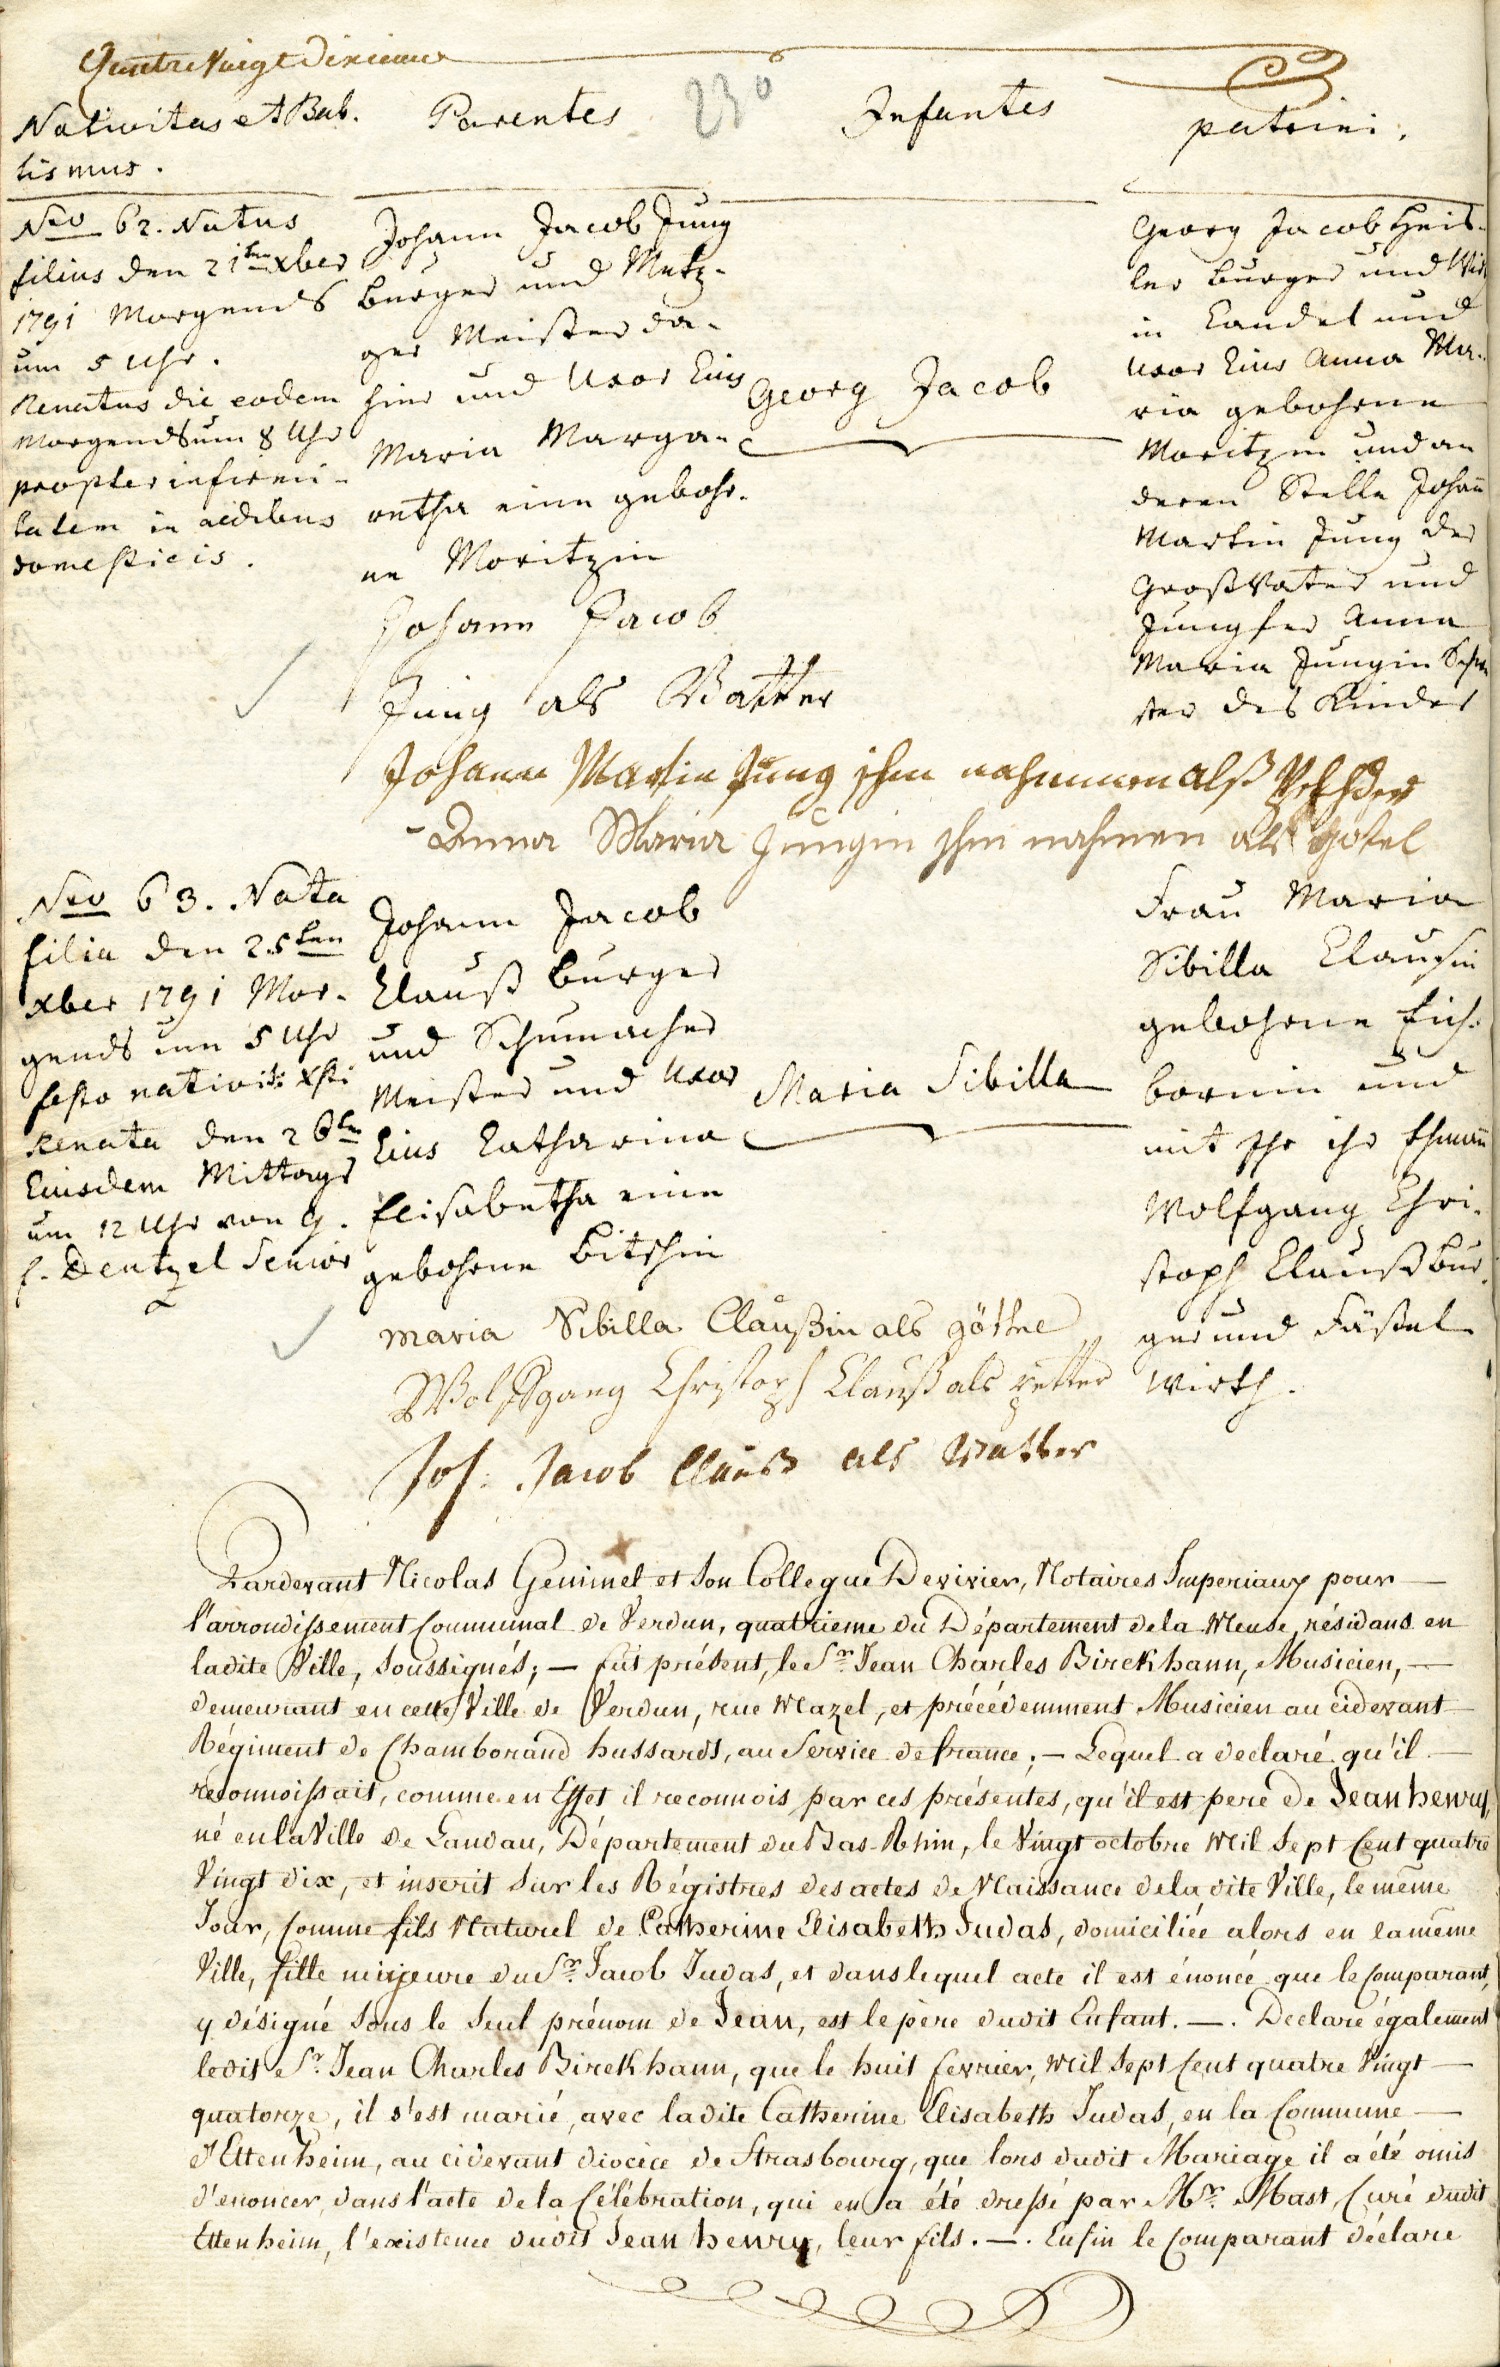 Quatre Vingt Dixieme
230
Nativitas et Bab-
tismus.
Parentes
Infantes
patrini.
Nro 62. Natus
filius den 21ten xber
1791 Morgends
um 5 Uhr.
Renatus die eodem
Morgends um 8 Uhr
propter infirmi-
tatem in aedibus
domesticis.
Johann Jacob Jung
burger und Metz-
ger Meister da-
hier und Uxor Eius
Maria Marga-
retha eine gebohr-
ne Moritzin
Georg Jacob
Georg Jacob Heis-
ler burger und
in Landel und
Uxor Eius Anna Ma-
ria gebohrne
Moritzin und an
deren Stelle Johann
Martin Jung der
Großvater und
Jungfer Anna
Maria Jungin Schwe
ster des Kindes
Johann Jacob
Jung als Vatter
Johann Martin Jung ihm nahmmen alß Pfetter
Anna Maria Jungin ihm nahmen als Gotel
Nro 63. Nata
filia den 25ten
xber 1791 Mor-
gends um 5 Uhr
festo nativit: Xsti
Renata den 26ten
Eiusdem Mittags
um 12 Uhr von G.
f. Dentzel Senior
Johann Jacob
Clauß burger
und Schumacher
Meister und Uxor
Eius Catharina
Elisabetha eine
gebohrne Bitschin
Maria Sibilla
Frau Maria
Sibilla Clausin
gebohrne Eich-
bornin und
mit Ihr ihr Ehmann
Wolfgang Chri-
stoph Clauß bur-
ger und Fäßel
Wirth.
Maria Sibilla Claußin als göthel
Wolffgang Christoph Clauß als petter
Joh. Jacob Clauß als Vatter
Pardevant Nicolas Gemmel et Son Collegue Devivier, Notaires Imperiaux pour
l'arrondissement Communal de Verdun, quatrieme du Département de la Meuse, résidans en
ladite Ville, Soussignés; — fut présent, le Sr. Jean Charles Birckhann, Musicien, —
demeurant en cette Ville de Verdun, rue Mazel, et précédemment Musicien au cidevant
Régiment de Chamborand hussards, au Service de france; — Lequel a declaré qu'il —
reconnoissait, comme en Effet il reconnois par ces présentes, qu'il est pere de Jean henry,
né en la Ville de Landau, Département du Bas-Rhin, le Vingt octobre Mil Sept Cent quatre
Vingt dix, et inscrit sur les Régistres des actes de Naissance de la dite Ville, le même
Jour, Comme fils Naturel de Catherine Elisabeth Judas, domiciliée alors en la même
Ville, fille mineure du Sr. Jacob Judas, et dans lequel acte il est énoncé que le Comparant,
y désigné Sous le Seul prénom de Jean, est le père dudit Enfant. —. Declare également
ledit Sr. Jean Charles Birckhann, que le huit fevrier, Mil Sept Cent quatre Vingt —
quatorze, il s'est marié, avec ladite Catherine Elisabeth Judas, en la Commune —
d'Ettenheim, au cidevant diocèce de Strasbourg, que lors dudit Mariage il a été omis
d'enoncer, dans l'acte de la Célébration, qui en a été dressé par Mr. Mast, Curé dudit
Ettenheim, l'existence dudit Jean henry, leur fils. —. Enfin le Comparant déclare